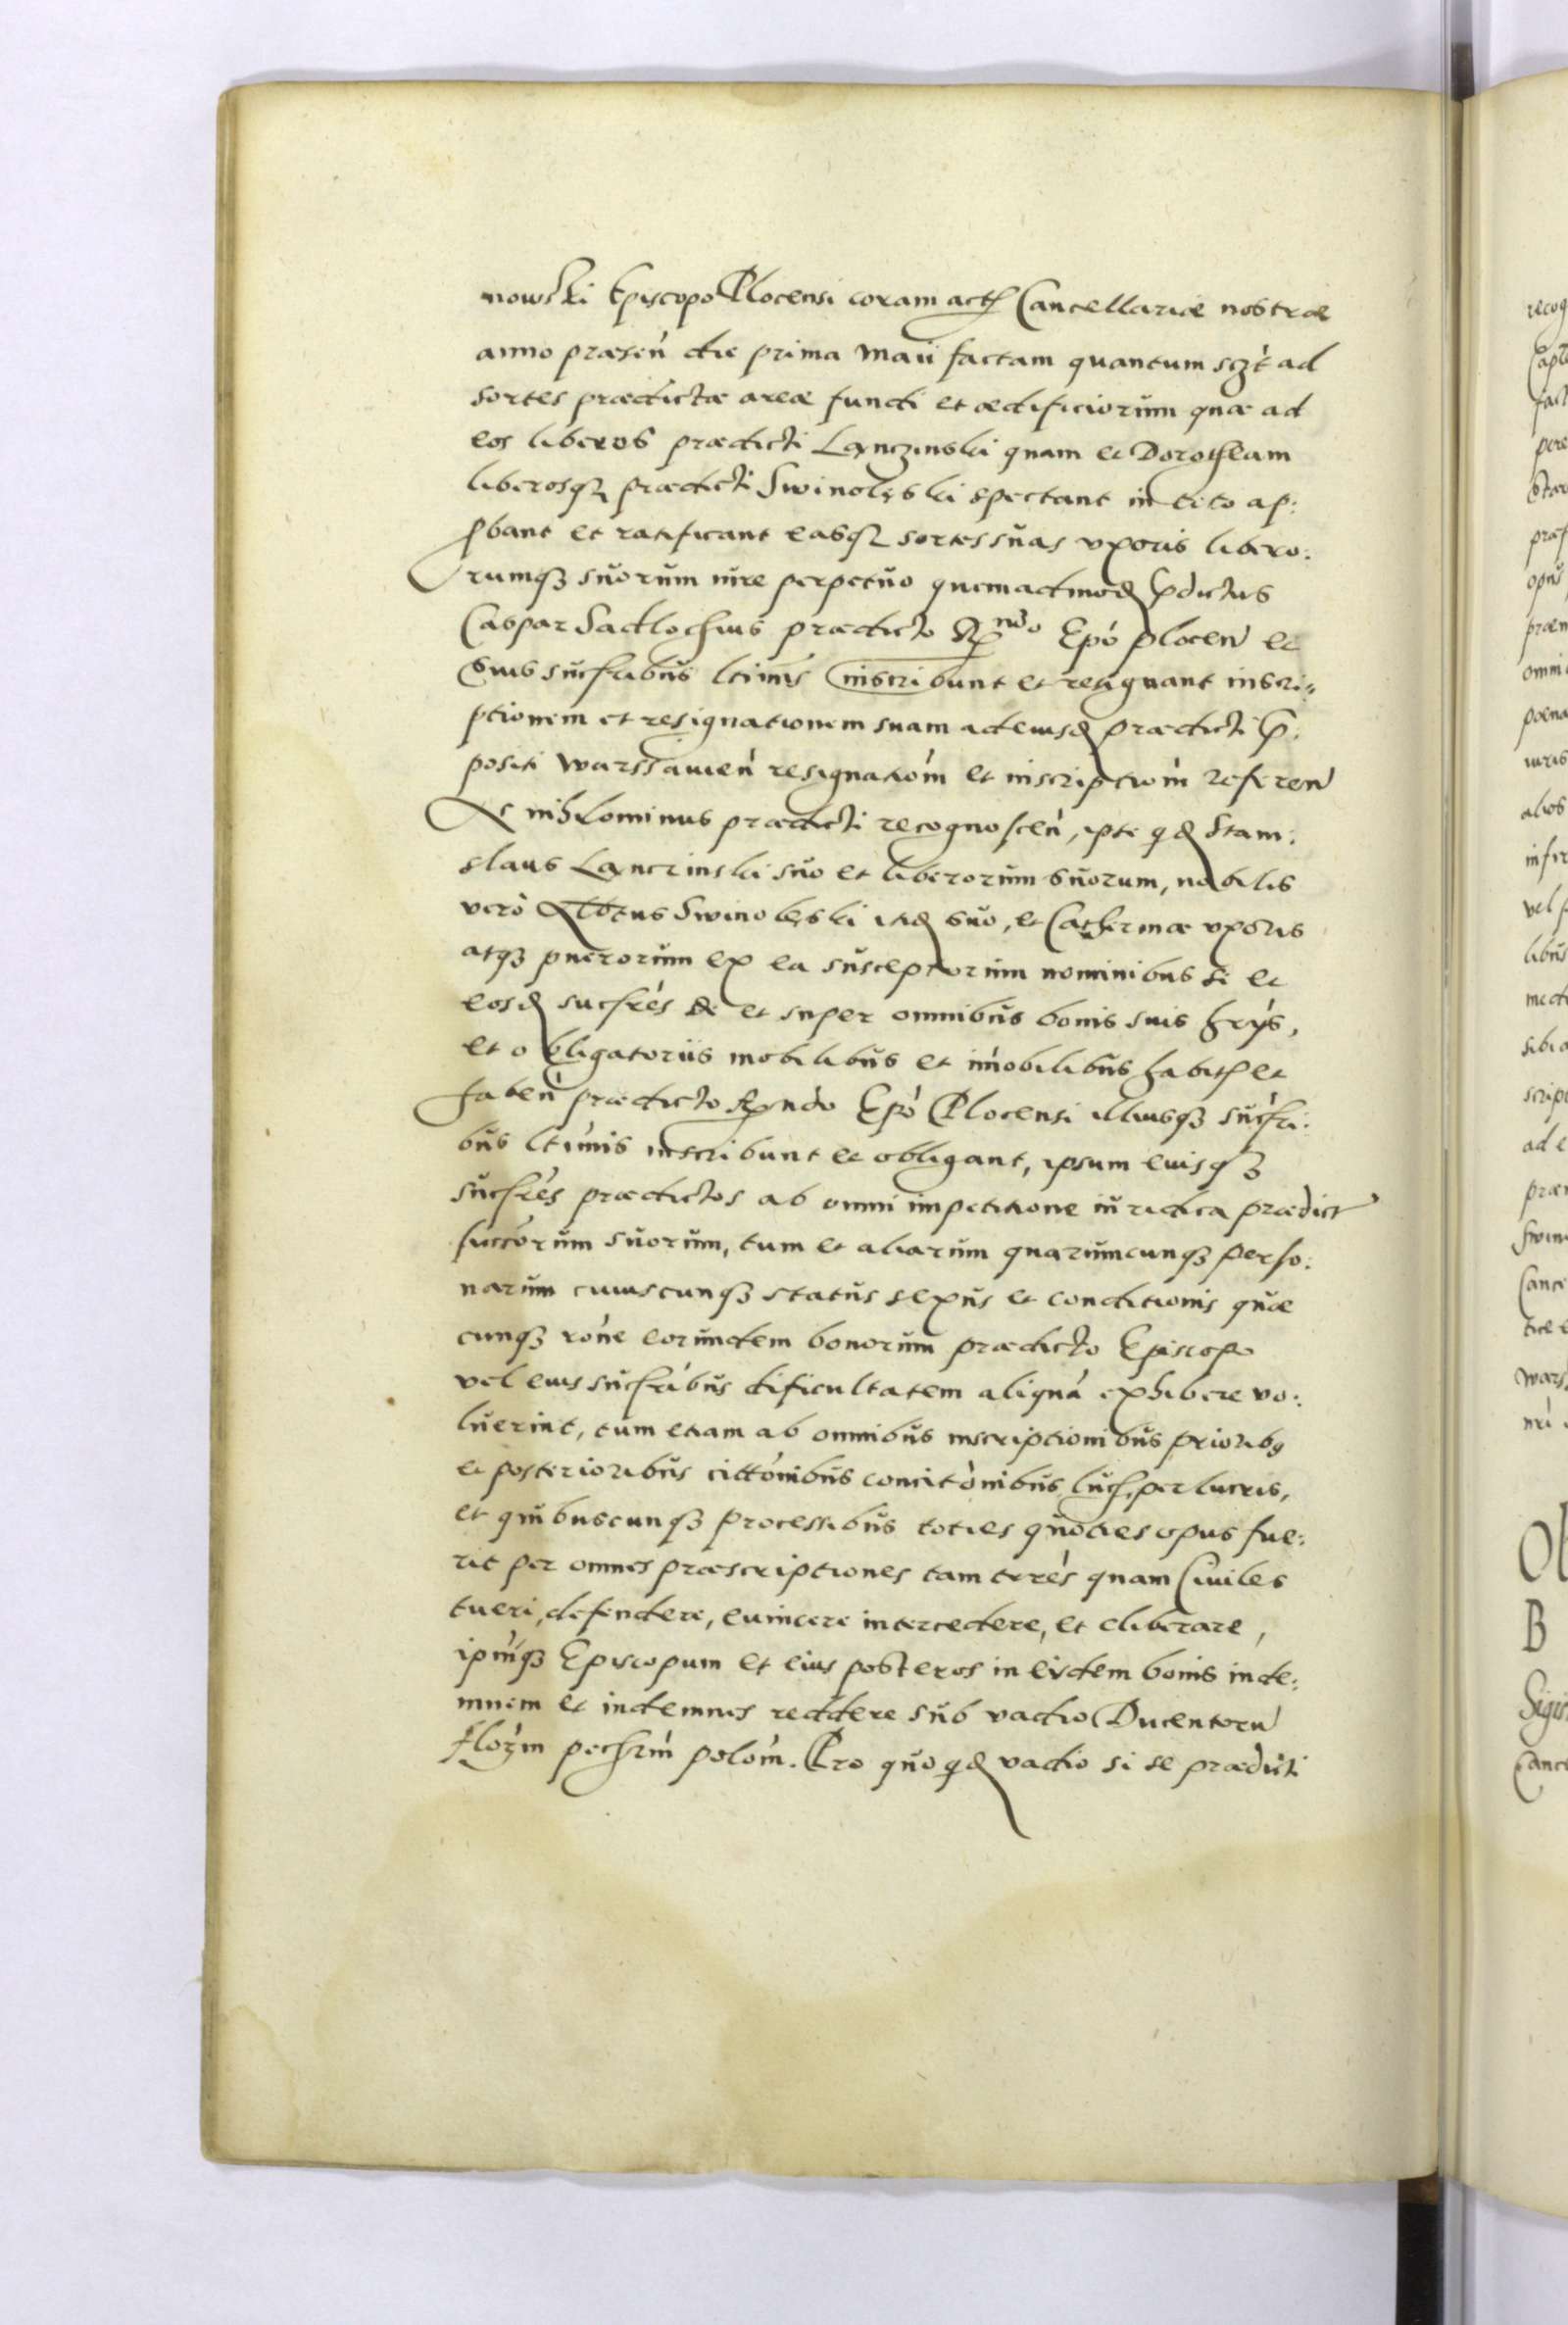 nowski Episcopo Plocensi coram actis Cancellariæ nostræ
anno præsen̄ die prima Maii factam quantum sczt ad
sortes prædictæ areæ fundi et ædificiorum quæ ad
eos liberos prædicti Lanczinski quam et Dorotheam
liberosq3 prædicti Swinolęski spectant in toto ap:
probant et ratificant easq3 sortes suas vxoris libero:
rumq3 suorum iure perpetuo quemadmod prædictus
Caspar Sadlochius prædicto Rndo Epō plocen̄ et
suis sucsribus ltimis inscribunt et resignant inscri=
ptionem et resignationem suam ad eiusd prædicti præ:
positi Warssauien̄ resignatiōm et inscriptiōm referen̄
Et nihilominus prædicti recognoscen̄, ipse qd Stani:
slaus Lanczinski suo et liberorum suorum, nobilis
vero Albtus Swinolęski itid suo, et Catherinæ vxoris
atq3 puerorum ex ea susceptorum nominibus se et
eosd sucsrēs de et super omnibus bonis suis hrijs,
et obligatoriis mobilibus et īmobilibus habitis et
haben̄ prædicto Rndo Epō Plocensi illiusq3 sucsri:
bus ltimis inscribunt et obligant, ipsum eiusq3
sucsrēs prædictos ab omni impetitione iuridica prædict
succōrum suorum, tum et aliarum quarumcunq3 perso:
narum cuiuscunq3 status sexus et conditionis quæ
cunq3 rōne eorundem bonorum prædicto Episcopo
vel eius sucsribus dificultatem aliquā exhibere vo:
luerint, tum etiam ab omnibus inscriptionibus priorib9
et posterioribus cittōnibus concitōnibus lucris, perlucris,
et quibuscunq3 processibus toties quoties opus fue:
rit per omnes præscriptiones tam terrēs quam Ciuiles
tueri, defendere, euincere intercedere, et eliberare,
ipmq3 Episcopum et eius posteros in eisdem bonis inde:
mnem et indemnes reddere sub vadio Ducentoru
florm pechrm polōm. Pro quo qd vadio si se prædicti